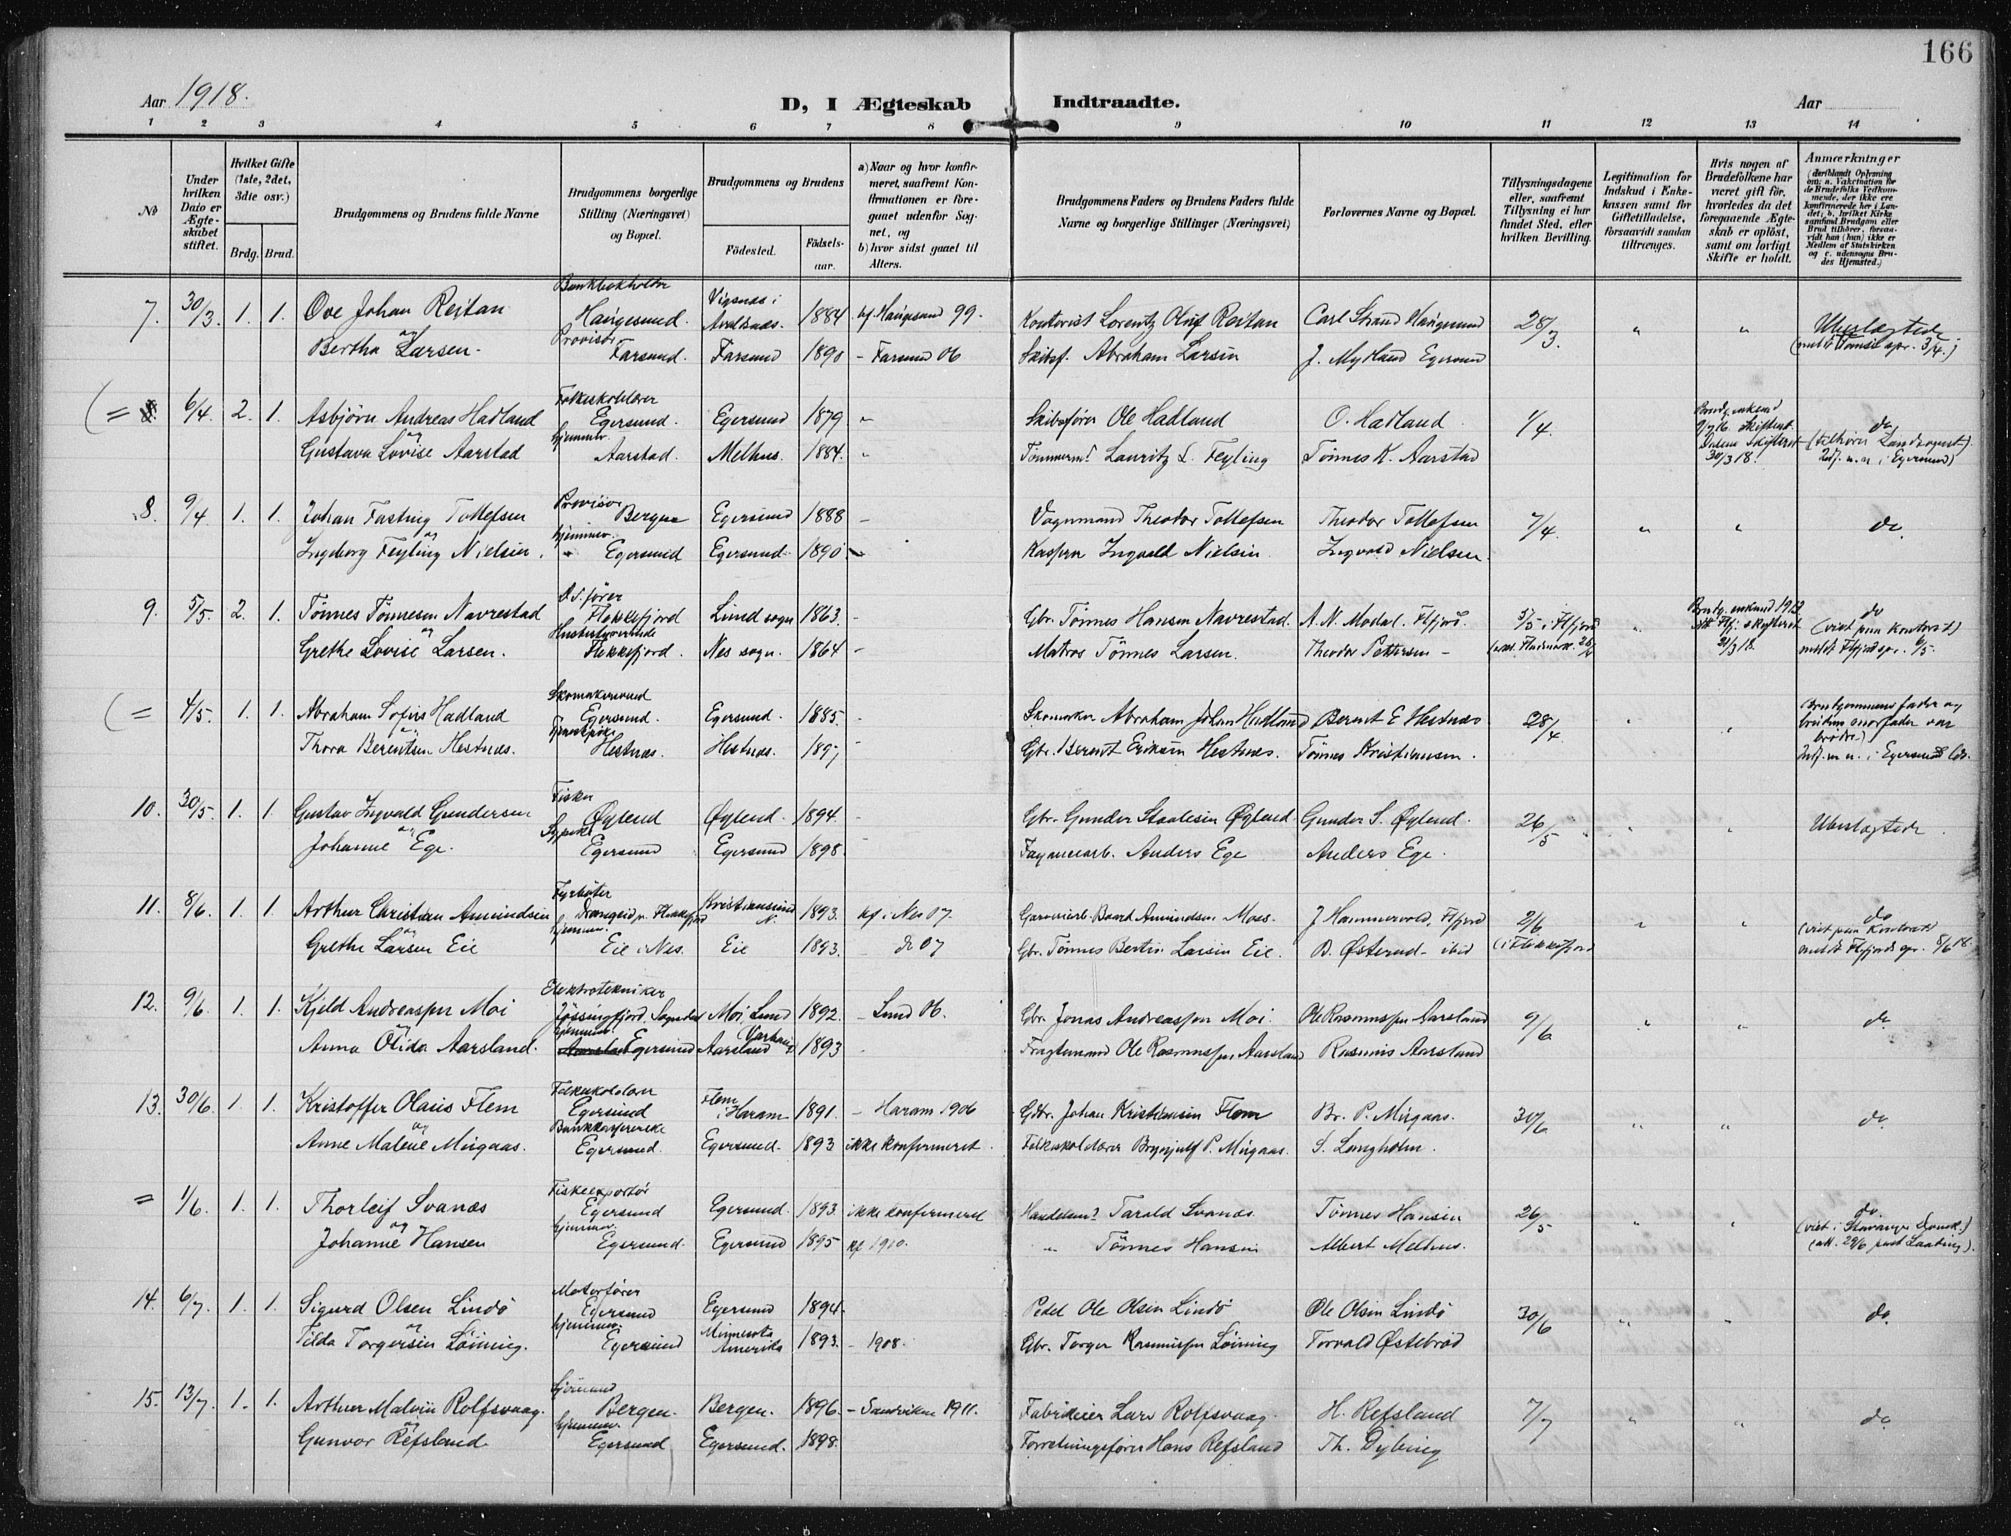 166
Aar 1918.
D, I Ægteskab Indtraadte.
Aar
1 2 3 4 5 6 7 8 9 10 11 12 13 14
No
Under hvilken Dato er Ægteskabet stiftet.
Hvilket Gifte (1ste, 2det, 3die osv.)
Brdg. Brud.
Brudgommens og Brudens fulde Navne
Brudgommens borgerlige Stilling (Næringsvei) og Bopæl.
Brudgommens og Brudens
Fødested. Fødselsaar.
a) Naar og hvor konfirmeret, saafremt Konfirmationen er foregaaet udenfor Sognet, og
b) hvor sidst gaaet til Alters.
Brudgommens Faders og Brudens Faders fulde Navne og borgerlige Stillinger (Næringsvei)
Forlovernes Navne og Bopæl.
Tillysningsdagene eller, saafremt Tillysning ei har fundet Sted, efter hvilken Bevilling.
Legitimation for Indskud i Enkekassen samt for Giftetilladelse, forsaavidt saadan tiltrænges.
Hvis nogen af Brudefolkene har været gift før, hvorledes da det foregaaende Ægteskab er opløst, samt om lovligt Skifte er holdt.
Anmærkninger
(deriblandt Oplysning om: a. Vakcination for de Brudefolks Vedkommende, der ikke ere konfirmerede her i Landet; b. hvilket Kirkesamfund Brudgom eller Brud tilhører, forsaavidt han (hun) ikke er Medlem af Statskirken og c. udensogns Brudes Hjemsted.)
7. 30/3 1. 1. Ove Johan Reitan Bankbokholder Haugesund. Vigsnæs i Avaldsnæs. 1884 kf. Haugesund 99. Kontorist Lorentz Oluf Reitan Carl Strand Haugesund 28/3. " " Ubeslægtede
og
Bertha Larsen. Provisør Farsund. Farsund 1890 - Farsund 06 Skibsf. Abraham Larsen J. Mydland Egersund
= 8. 6/4 2. 1. Asbjørn Andreas Hadland Folkeskolelærer Egersund. Egersund 1879 " Skibsfører Ole Hadland O. Hadland 1/4. do
og
Gustava Lovise Aarstad hjemmev. Aarstad. Melhus. 1884. " Tømmerm. Lauritz L. Feyling Tønnes K. Aarstad 30/3 18.
8. 9/4 1. 1. Johan Fasting Tollefsen Provisor Bergen Egersund 1888 - Vognmand Theodor Tollefsen Theodor Tollefsen 7/4. " " do
og
Ingeborg Feyling Nielsen. hjemmev. Egersund Egersund 1890 Ingvald Nielsen Ingvald Nielsen
9. 5/5 2. 1. Tønnes Tønnesen Navrestad D.S. fører Flekkefjord Lund sogn 1863. - Gbr. Tønnes Hansen Navrestad. A. N. Modal. Flfjord. 5/5 i Flfjord " do
og
Grethe Lovise Larsen. Flekkefjord. Nes sogn. 1864 - Matros Tønnes Larsen. Theodor Pettersen - 21/3 18.
= 4/5. 1. 1. Abraham Sofus Hadland Skomakersvend Egersund. Egersund. 1885. - Skomaker Abraham Johan Hadland Berent E Hestnæs 28/4 " " Brudgommens fader og brudens morfader var brødre.
og
Thora Berentsen Hestnæs. Hestnæs. Hestnæs. 1897 - Gbr. Berent Eriksen Hestnæs. Tønnes Kristiansen.
10. 30/5 1. 1. Gustav Ingvald Gundersen Fisker Øglend Øglend. 1894. - Gbr. Gunder Staalesen Øglend. Gunder S. Øglend. 26/5 " " Ubeslægtede
og
Johanne Ege. Sypike Egersund Egersund 1898. Fayancearb. Anders Ege Anders Ege.
11. 8/6. 1. 1. Arthur Christian Amundsen Fyrbøter Drangeid pr. Flekkefjord Kristiansund N. 1893. kf. i Nes 07. Garveriarb. Baard Amundsen Moes. J Hammervold, Flfjord 2/6 " " do
og
Grethe Larsen Eie hjemmev. Eie i Nes. Eie 1893. do 07 Gbr. Tønnes Bertin Larsen Eie. B. Østerud - ibid (i Flekkefjord
12. 9/6 1. 1. Kjeld Andreassen Moi Elektrotekniker Jøssingfjord. Sogndal Moi, Lund 1892. - Lund 06. Gbr. Jonas Andreassen Moi. Ole Rasmussen Aarsland 9/6 " " do
og
Anna Olida Aarsland. hjemmev. Egersund Aarsland 1893 Fragtemand Ole Rasmussen Aarsland Rasmus Aarsland
13. 30/6. 1. 1. Kristoffer Olaus Flem Folkeskolelærer Egersund Flem i Haram 1891. - Haram 1906 Gdbr. Johan Kristiansen Flem Br. P. Mirgaas. 30/6 " " do
og
Anne Malene Mirgaas. Egersund. Egersund. 1893 ikke konfirmeret. Folkeskolelærer Brynjulf P. Mirgaas. S. Langholm.
= 1/6. 1. 1. Thorleif Svanæs Fiskeexportør Egersund Egersund. 1893 ikke konfirmeret Handelsm. Tarald Svanæs. Tønnes Hansen 26/5 " " do
og
Johanne Hansen hjemmev. Egersund. Egersund 1895 kf 1910. " Tønnes Hansen Albert Melhus.
14. 6/7. 1. 1. Sigurd Olsen Lindø Motorfører Egersund Egersund 1894. Pedel Ole Olsen Lindø Ole Olsen Lindø 30/6 " " do
og
Tilda Torgersen Løining. hjemmev. Egersund Minnesota Amerika 1893. - 1908. Gbr. Torger Rasmussen Løining Torvald Østebrød
15. 13/7. 1. 1. Arthur Malvin Rolfsvaag. Sjømand Bergen. Bergen. 1896. - Sandviken 1911. Fabrikeier Lars Rolfsvaag. H. Refsland 7/7 " " do
og
Gunvor Refsland hjemmev. Egersund Egersund. 1898. Forretningsfører Hans Refsland Th. Dybing